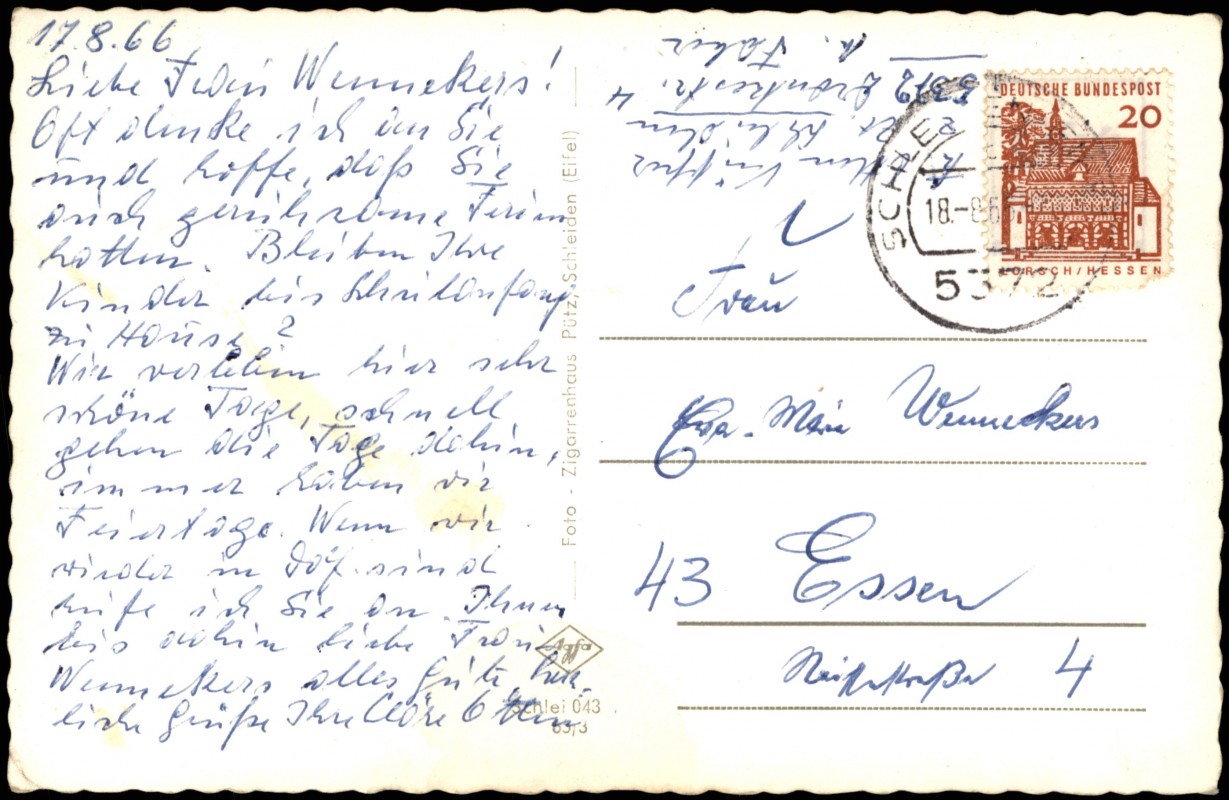 17.8.66
Liebe Frau Wennekers!
Oft denke ich an Sie
und hoffe, daß Sie
auch geruhsame Ferien
hatten. Bleiben Ihre
Kinder bis Schulanfang
zu Hause?
Wir verleben hier sehr
schöne Tage, schnell
gehen die Tage dahin,
immer haben wir
Feiertage. Wenn wir
wieder in Ddf. sind
rufe ich Sie an. Ihnen
bis dahin liebe Frau
Wennekers alles Gute herz-
liche Grüße Ihre Cläre
Foto - Zigarrenhaus Pütz, Schleiden (Eifel)
Agfa
Schlei 043
65/3
5372
4
DEUTSCHE BUNDESPOST
20
LORSCH/HESSEN
SCHLEIDEN
18.-8.66
5372
Frau
Eva-Maria Wenneckers
43 Essen
4